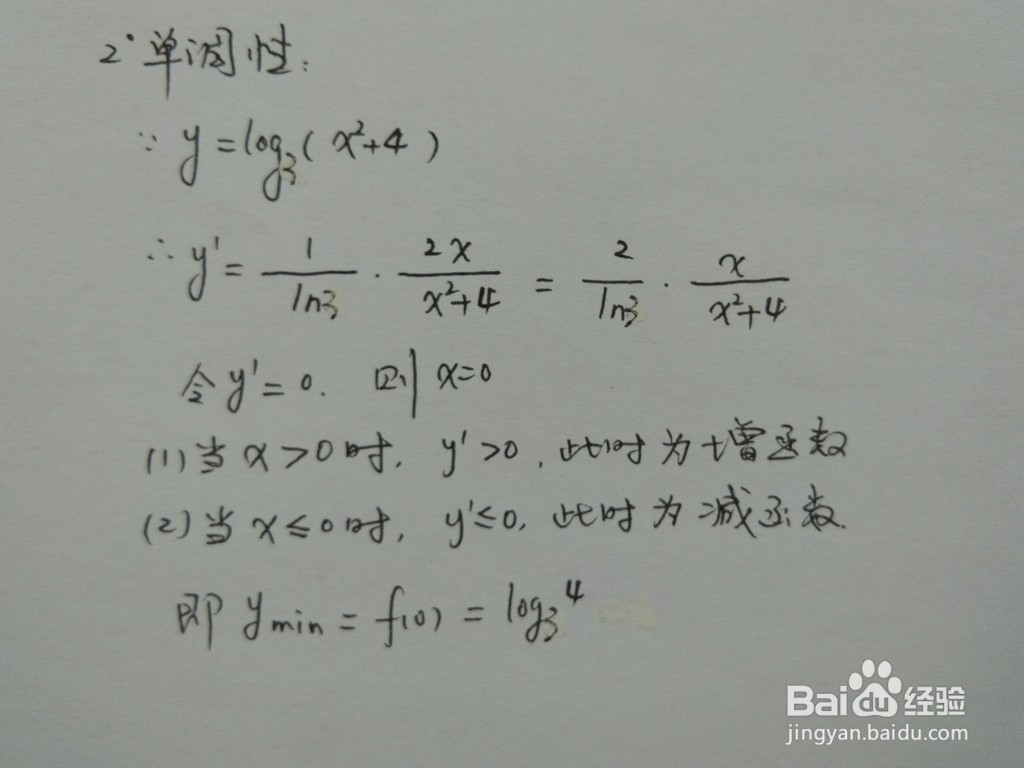 2° 单调性:
∵ y = log₃(x²+4)
∴ y' = 1/ln3 · 2x/(x²+4) = 2/ln3 · x/(x²+4)
令 y' = 0. 则 x=0
(1) 当 x > 0 时, y' > 0, 此时为增函数
(2) 当 x ≤ 0 时, y' ≤ 0, 此时为减函数.
即 y min = f(0) = log₃4
Bai du 经验
jingyan.baidu.com